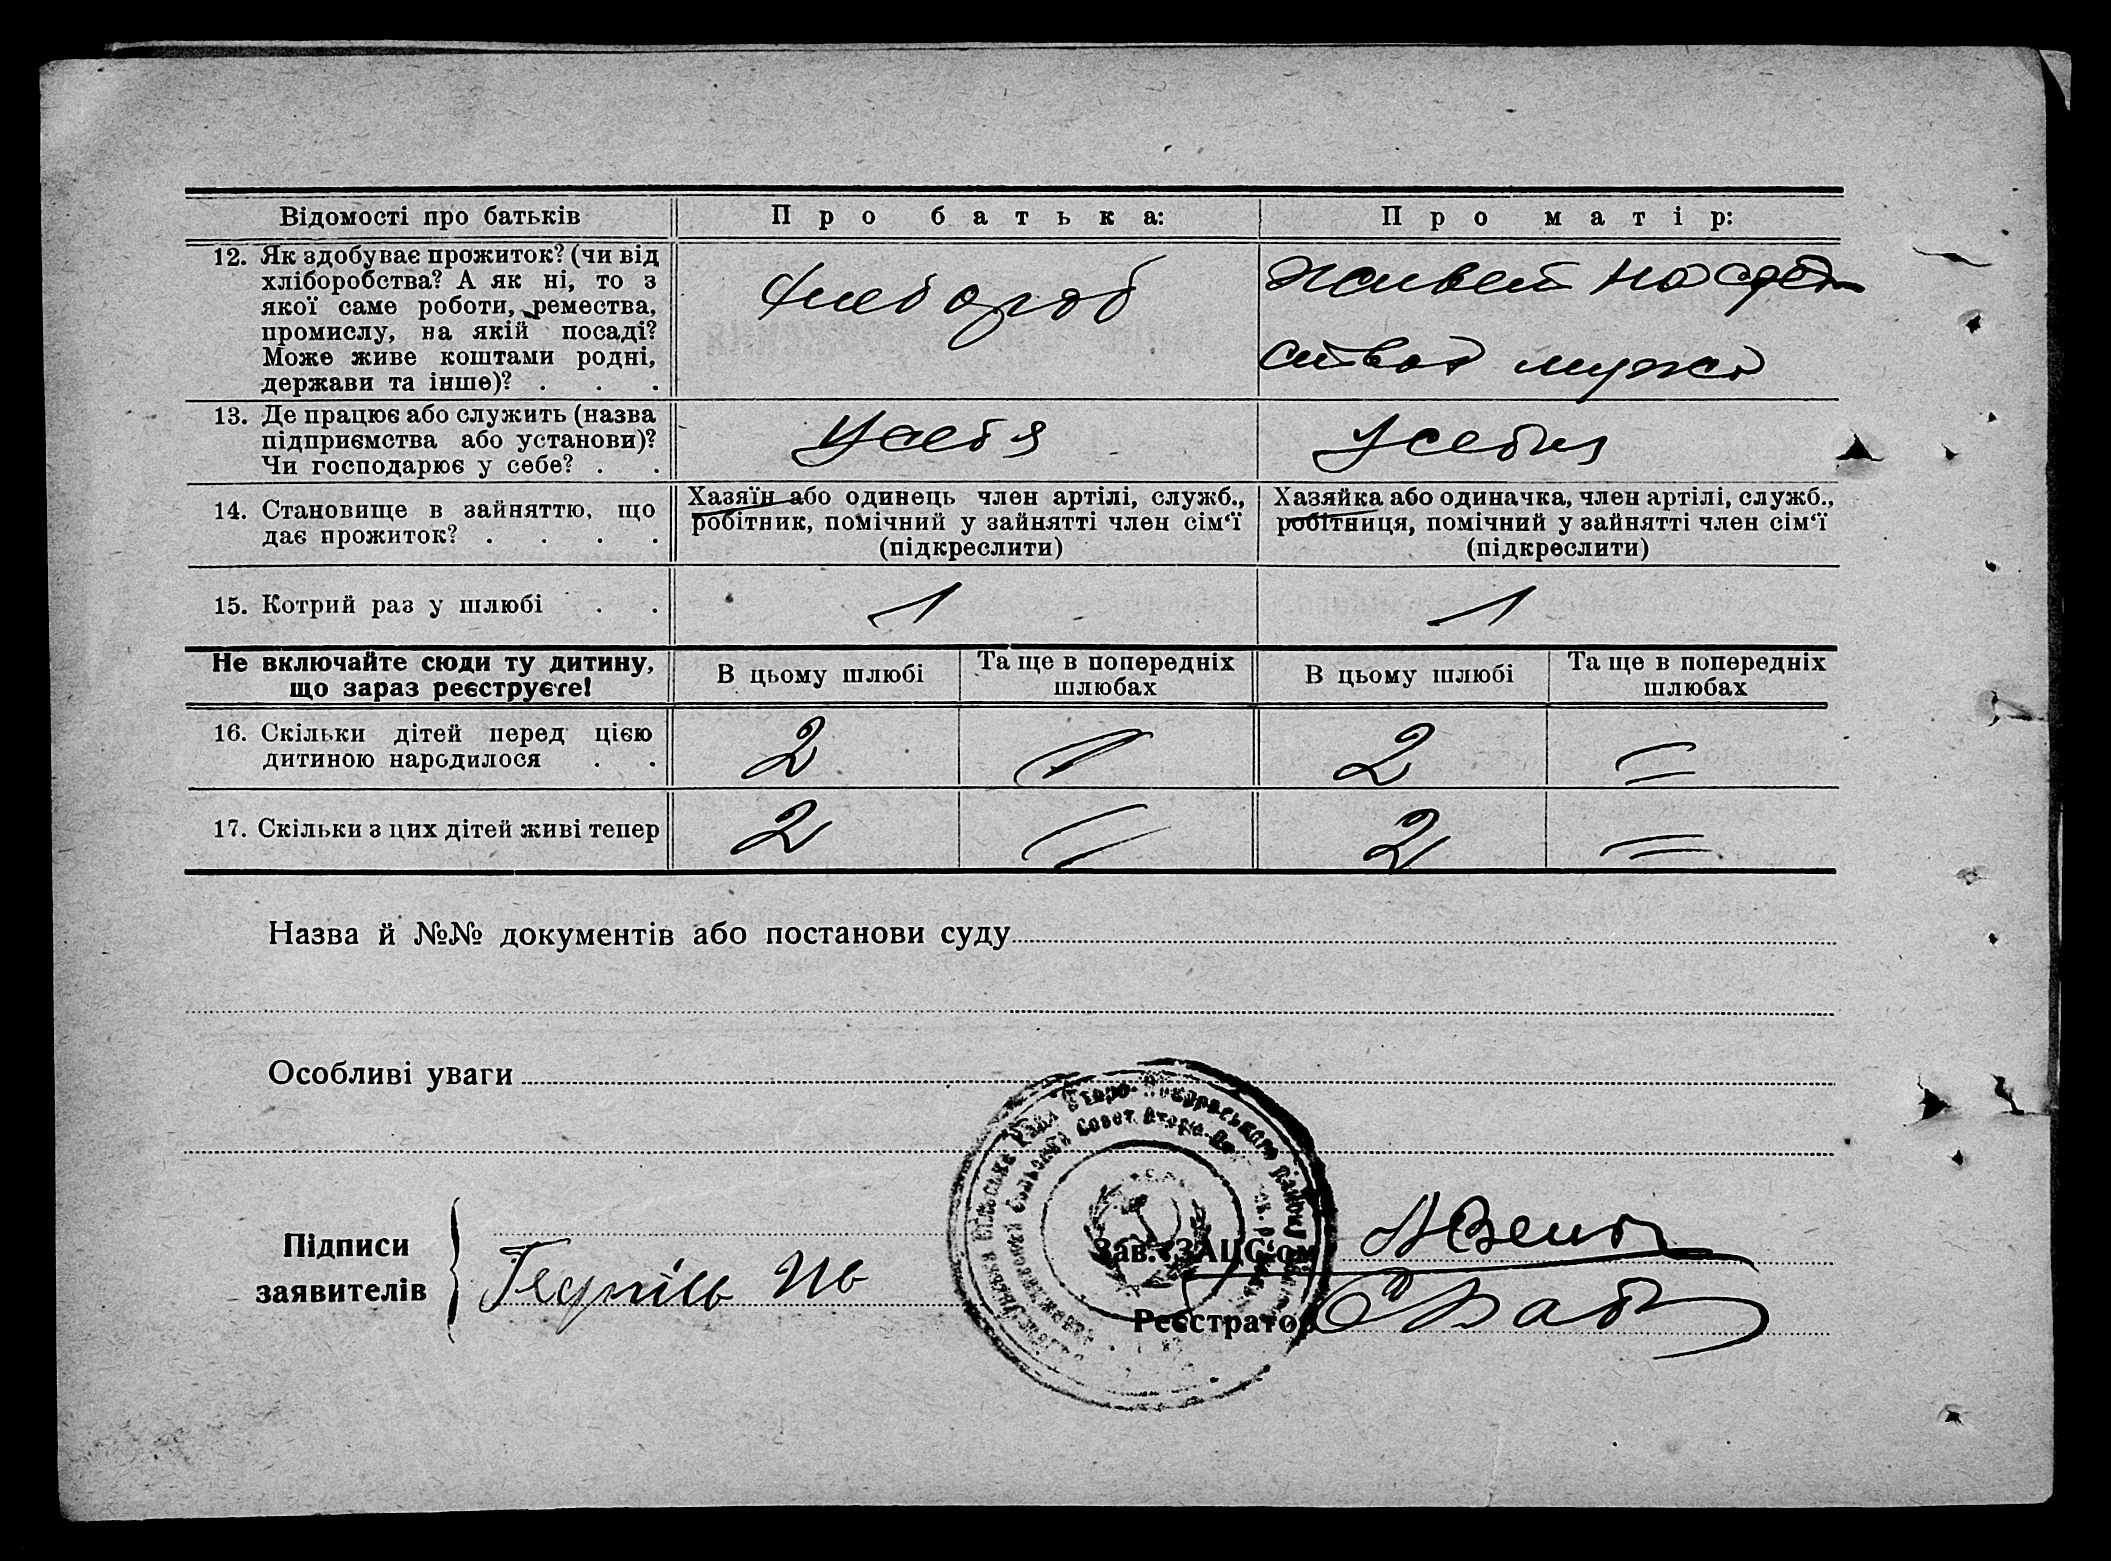 Відомості про батьків
Про батька:
Про матір:
12. Як здобуває прожиток? (чи від
хліборобства? А як ні, то з
якої саме роботи, ремества,
промислу, на якій посаді?
Може живе коштами родні,
держави та інше)? . . .
Хлебороб
живет на сред
ства мужа
13. Де працює або служить (назва
підприємства або установи)?
Чи господарює у себе? . .
У себя
У себя
14. Становище в зайняттю, що
дає прожиток? . . . .
Хазяїн або одинець член артілі, служб.,
робітник, помічний у зайнятті член сім'ї
(підкреслити)
Хазяйка або одиначка, член артілі, служб.,
робітниця, помічний у зайнятті член сім'ї
(підкреслити)
15. Котрий раз у шлюбі . .
1
1
Не включайте сюди ту дитину,
що зараз реєструєте!
В цьому шлюбі
Та ще в попередніх
шлюбах
В цьому шлюбі
Та ще в попередніх
шлюбах
16. Скільки дітей перед цією
дитиною народилося . .
2
2
17. Скільки з цих дітей живі тепер
2
2
Назва й №№ документів або постанови суду
Особливі уваги
Підписи
заявителів
Зав. „ЗАЦС'ом"
Реєстратор